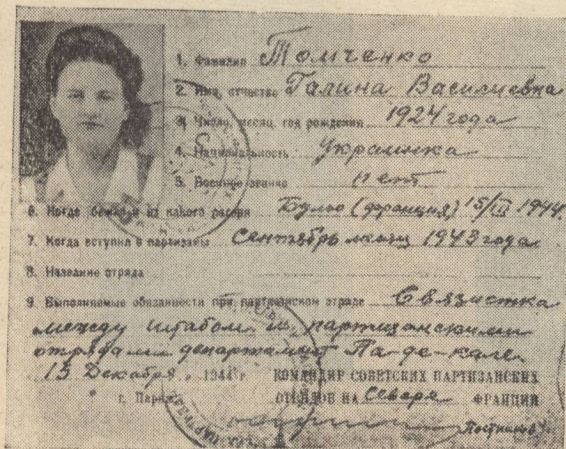 1. Фамилия Томченко
2. Имя, отчество Галина Василиевна
3. Число, месяц, год рождения 1924 года
4. Национальность украинка
5. Военное звание нет
6. Когда бежал и из какого лагеря Булю (франция) 15/III 1944.
7. Когда вступил в партизаны сентябрь 1943 года
8. Название отряда
9. Выполняемые обязанности при партизанском отряде Связистка
между штабом и партизанскими
отрядами департамент Па-де-кале
13 Декабря 1944 г. КОМАНДИР СОВЕТСКИХ ПАРТИЗАНСКИХ
г. Париж ОТРЯДОВ НА Севере ФРАНЦИИ